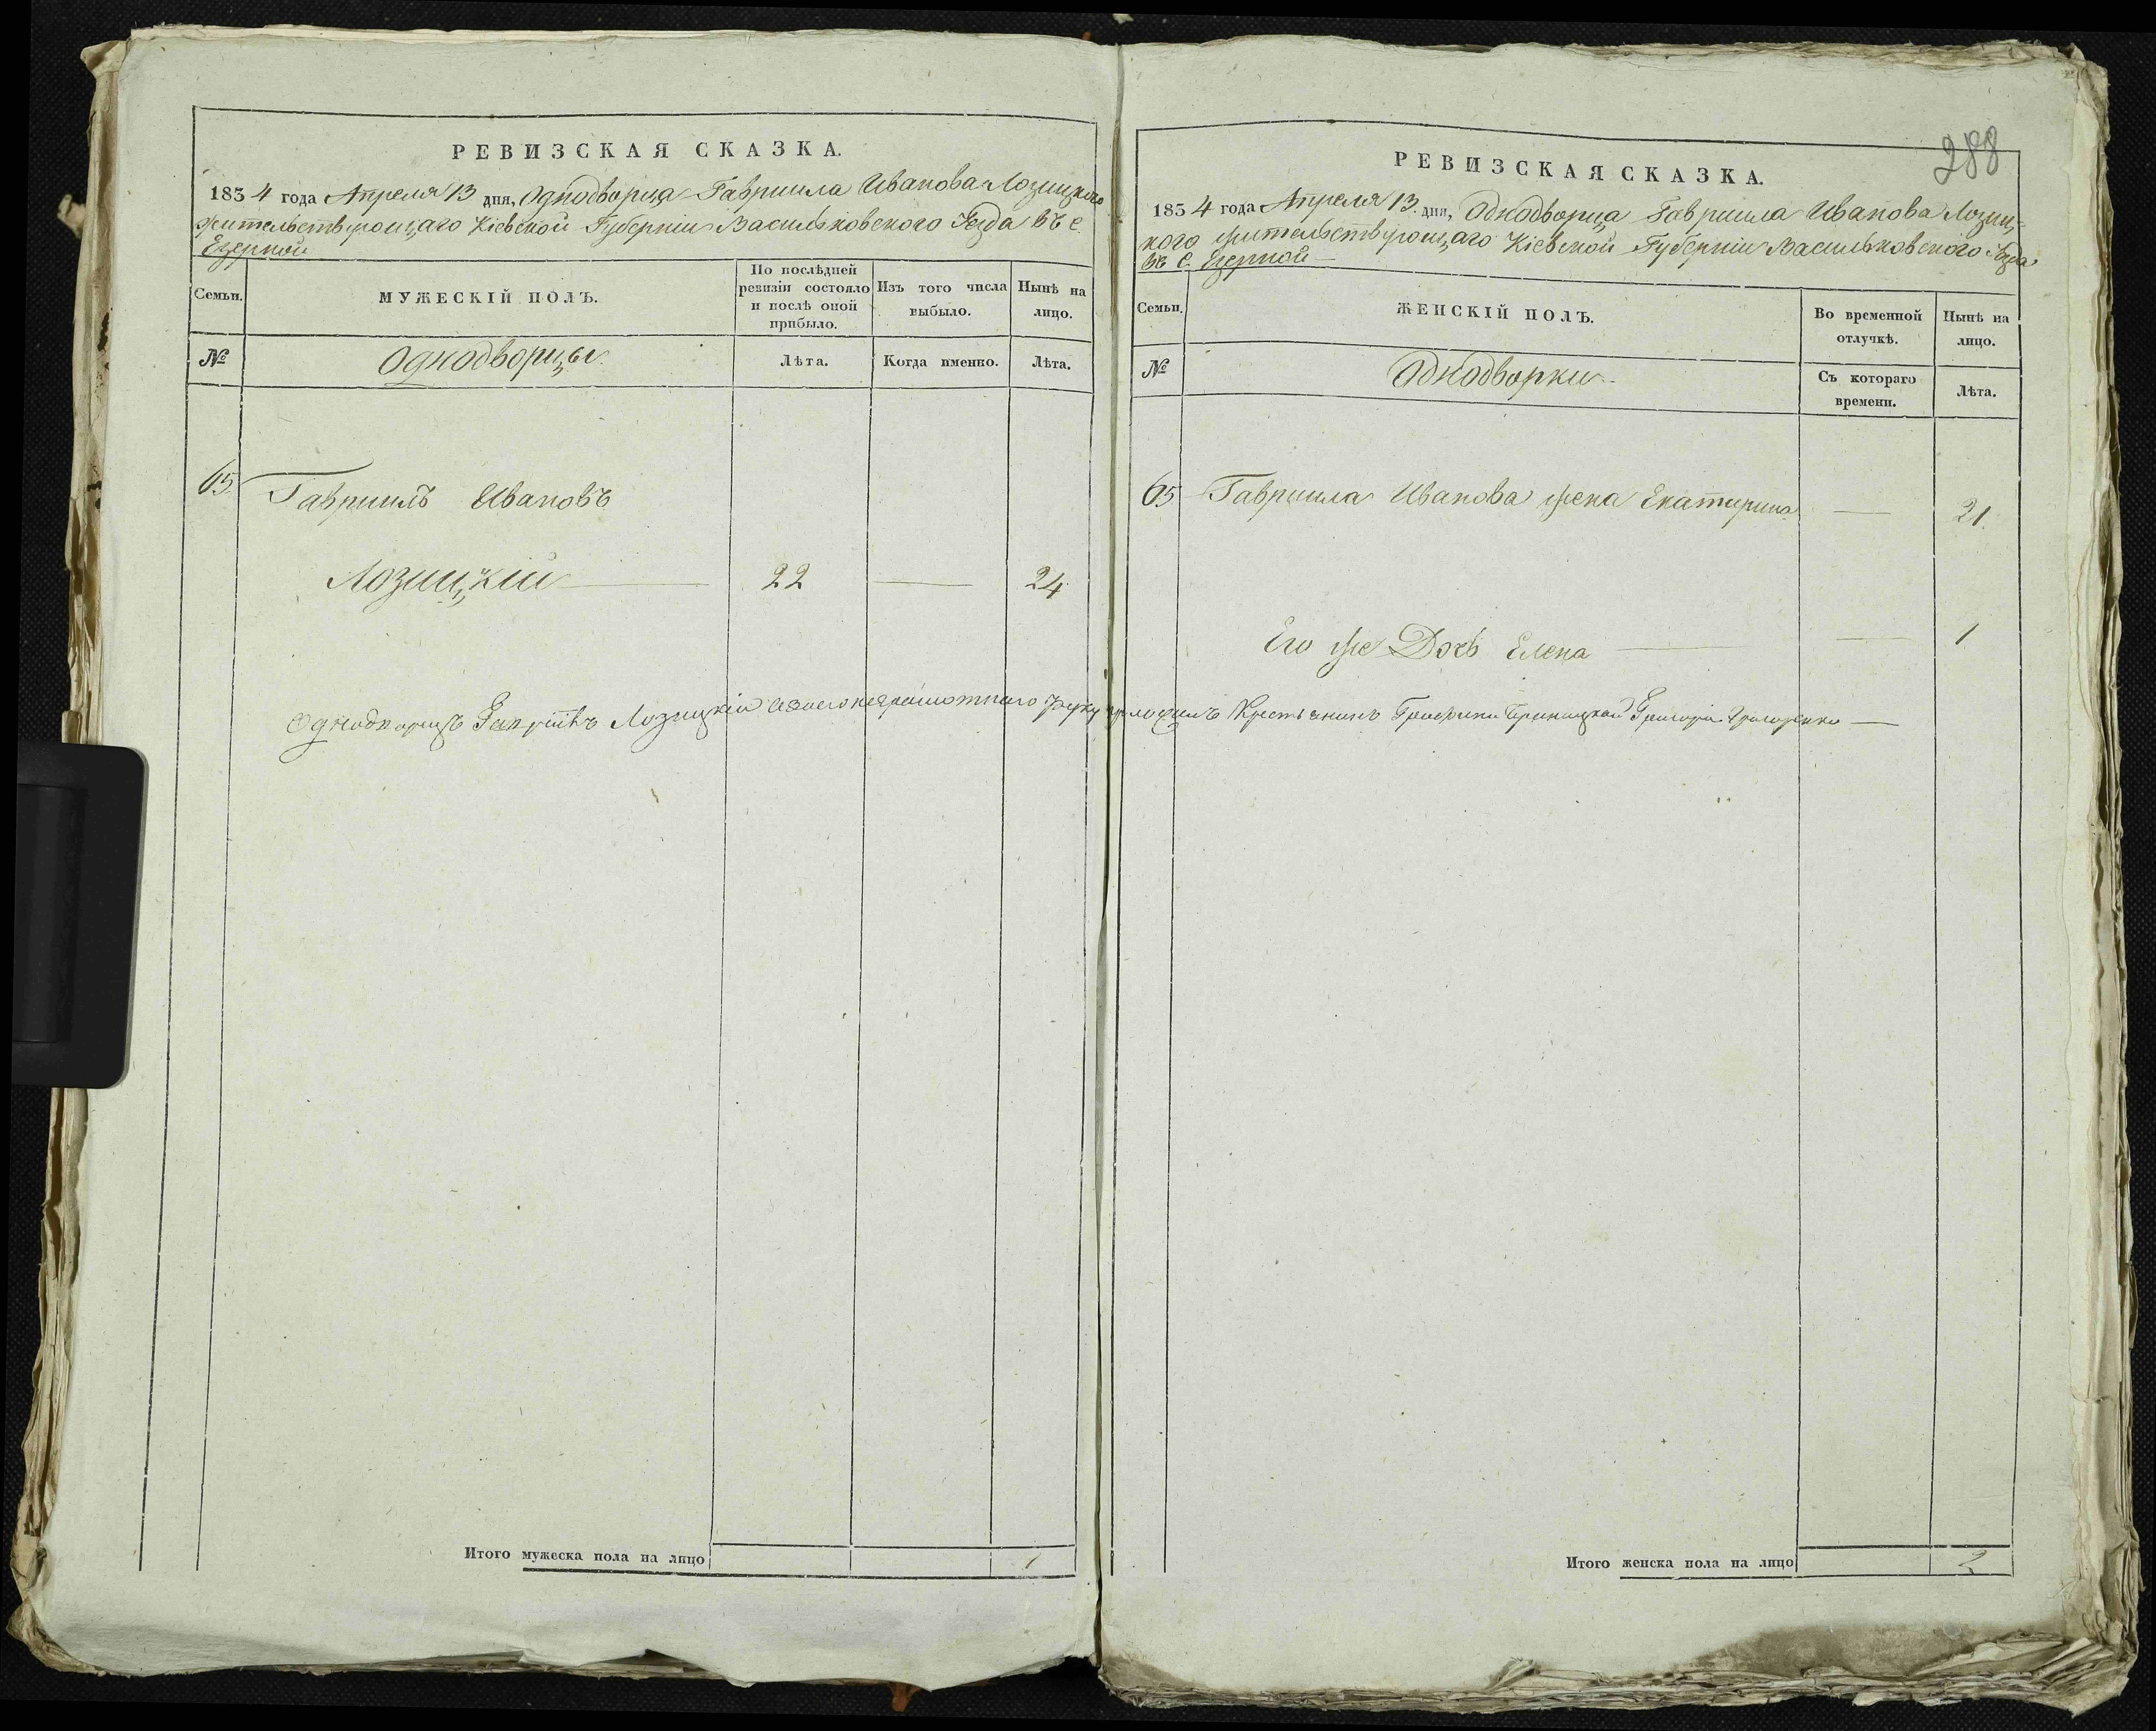 РЕВИЗСКАЯ СКАЗКА.
1834 года Апреля 13 дня, Однодворца Гавриила Иванова Лозицкого
жительствующаго Кіевской Губерніи Васильковского Уезда въ с.
Езерной
Семьи.
МУЖЕСКІЙ ПОЛЪ.
По послѣдней ревизіи состояло и послѣ оной прибыло.
Изъ того числа выбыло.
Нынѣ на лицо.
№
Однодворцы.
Лѣта.
Когда именно.
Лѣта.
65. Гавриилъ Ивановъ
Лозицкій — 22 — 24.
Итого мужеска пола на лицо 1
288
РЕВИЗСКАЯ СКАЗКА.
1834 года Апреля 13. дня, Однодворца Гавриила Иванова Лозиц-
кого жительствующаго Кіевской Губерніи Васильковского Уезда
въ с. Езерной —
Семьи.
ЖЕНСКІЙ ПОЛЪ.
Во временной отлучкѣ.
Нынѣ на лицо.
№
Однодворки.
Съ котораго времени.
Лѣта.
65 Гавриила Иванова жена Екатерина — 21.
Его же Дочь Елена — 1
Однодворецъ Лозицкій неграмотного руку приложилъ Крестьянинъ Григорій Григоренко —
Итого женска пола на лицо 2